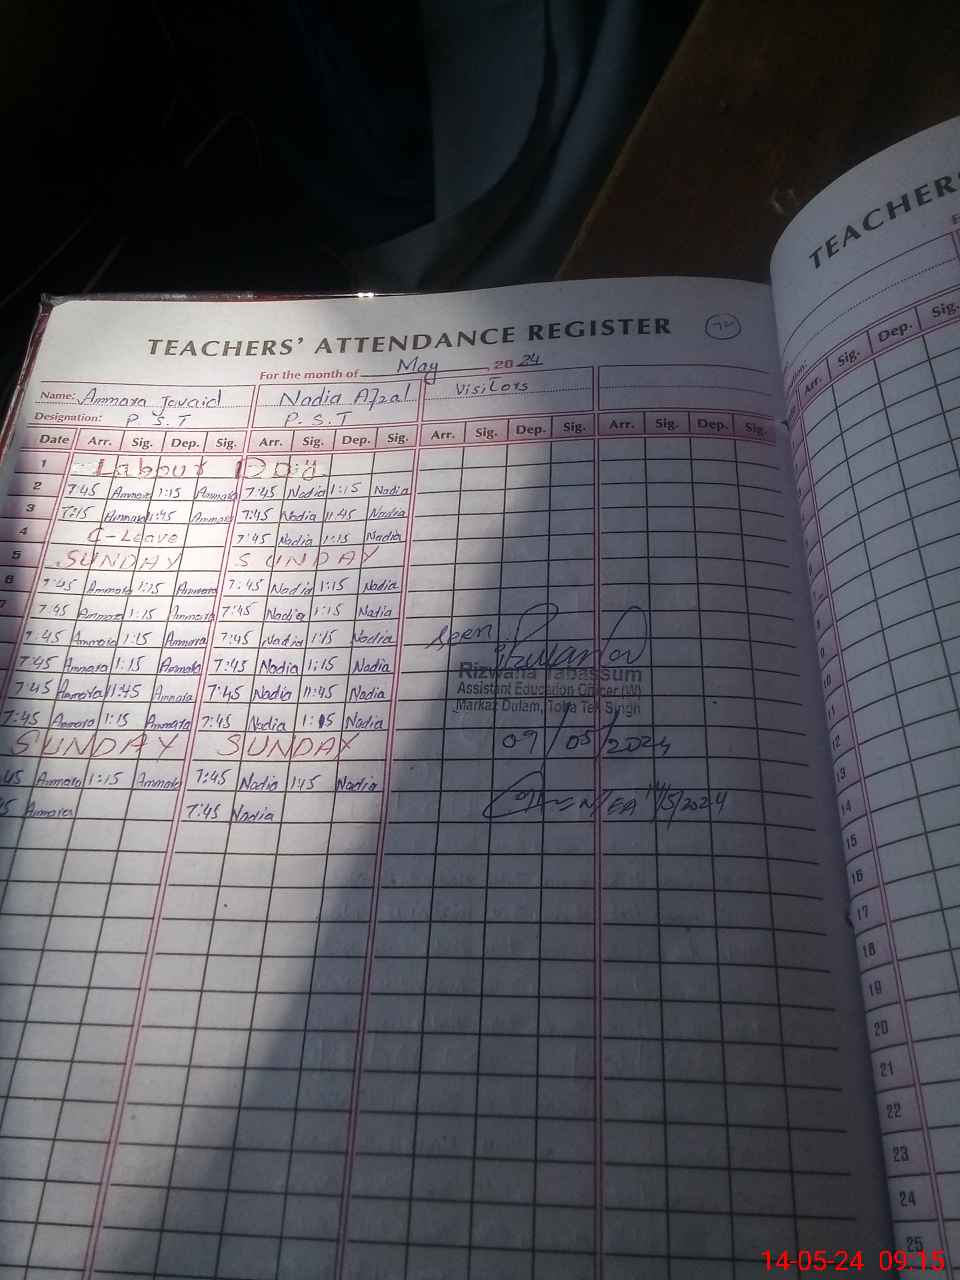 TEACHERS' ATTENDANCE REGISTER 72
For the month of May 2024
Name: Ammara Javaid Nadia Afzal Visitors
Designation: P.S.T P.S.T
Date Arr. Sig. Dep. Sig. Arr. Sig. Dep. Sig. Arr. Sig. Dep. Sig. Arr. Sig. Dep. Sig.
1 Labour Day
2 7:45 Ammara 1:15 Ammara 7:45 Nadia 1:15 Nadia
3 7:15 Ammara 11:45 Ammara 7:45 Nadia 11:45 Nadia
4 C-Leave 7:45 Nadia 1:15 Nadia
5 SUNDAY SUNDAY
6 7:45 Ammara 1:15 Ammara 7:45 Nadia 1:15 Nadia
7 7:45 Ammara 1:15 Ammara 7:45 Nadia 1:15 Nadia
7:45 Ammara 1:15 Ammara 7:45 Nadia 1:15 Nadia Seen
7:45 Ammara 1:15 Ammara 7:45 Nadia 1:15 Nadia
Rizwana Tabassum
7:45 Ammara 11:45 Ammara 7:45 Nadia 11:45 Nadia
Assistant Education Officer (W)
Markaz Dulam, Toba Tek Singh
7:45 Ammara 1:15 Ammara 7:45 Nadia 1:15 Nadia
SUNDAY SUNDAY 09/05/2024
45 Ammara 1:15 Ammara 7:45 Nadia 1:15 Nadia
5 Ammara 7:45 Nadia MEA 14/5/2024
TEACHERS
Arr. Sig. Dep. Sig.
9
10
11
12
13
14
15
16
17
18
19
20
21
22
23
24
25
14-05-24 09:15